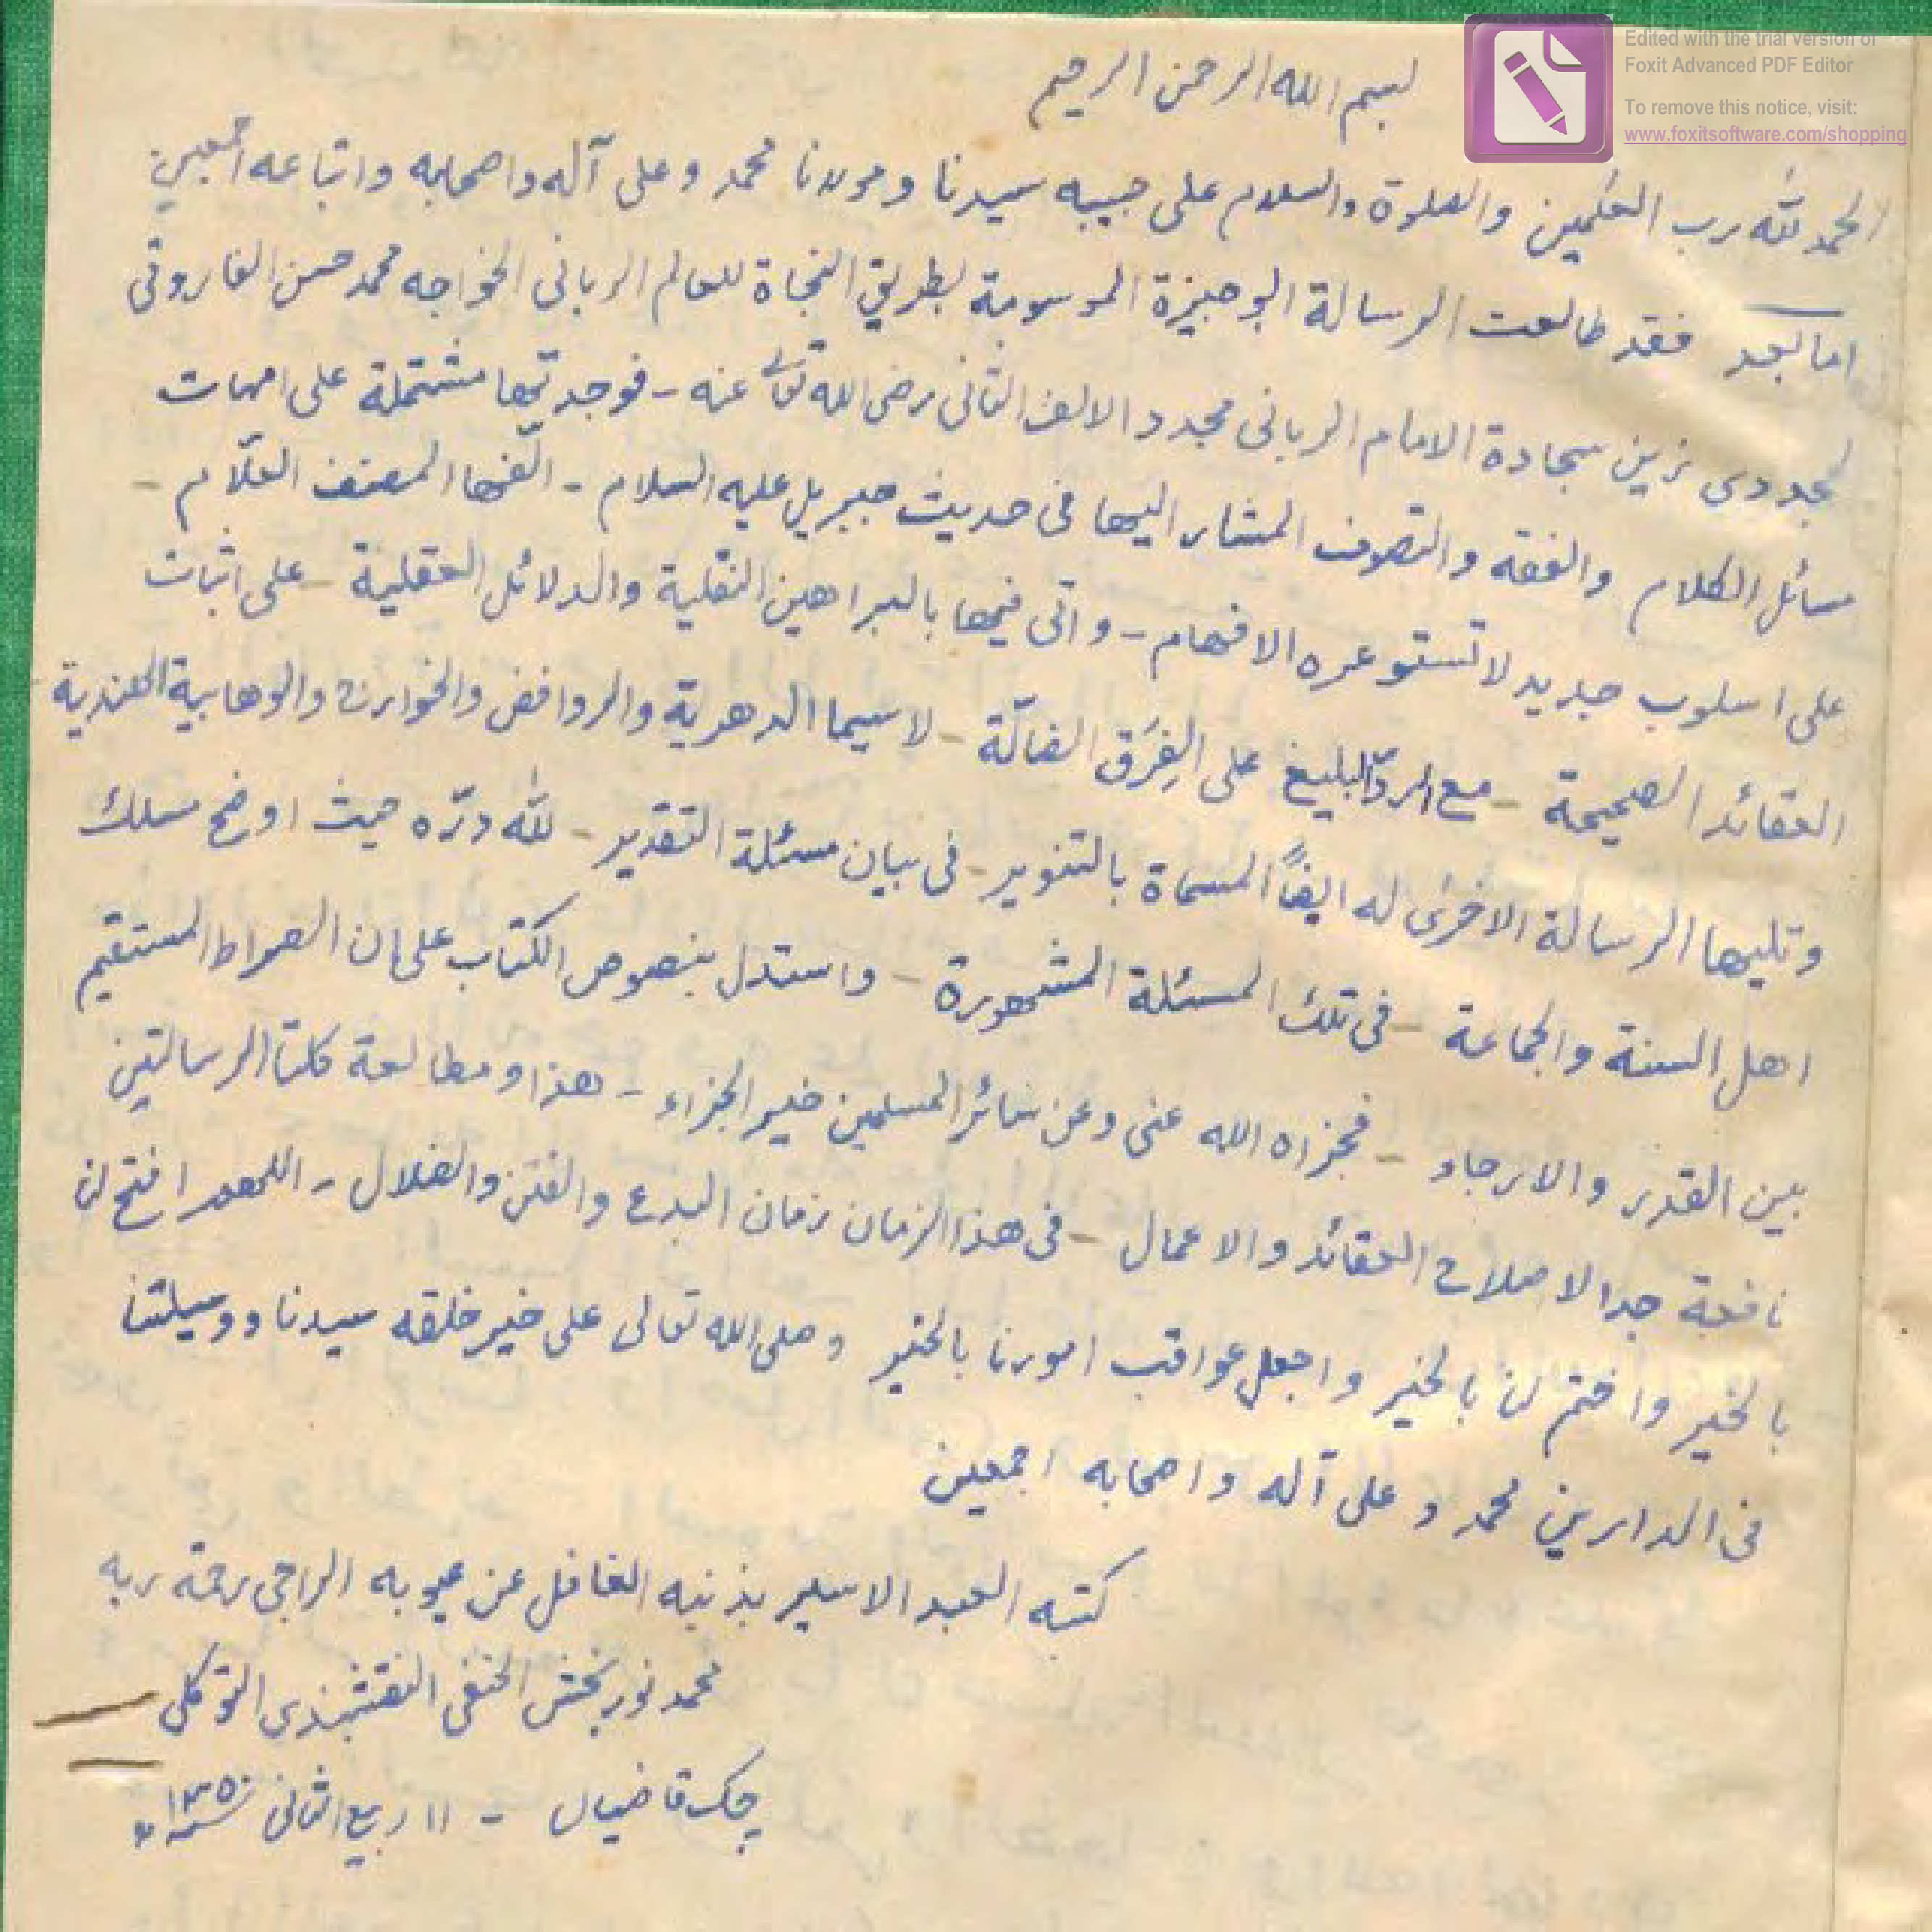 بسم الله الرحمن الرحيم
Edited with the trial version of
Foxit Advanced PDF Editor
To remove this notice, visit:
www.foxitsoftware.com/shopping
الحمد لله رب العٰلمين والصلوة والسلام على حبيبه سيدنا ومولانا محمد وعلى آله واصحابه واتباعه اجمعين
اما بعد فقد طالعت الرسالة الوجيزة الموسومة بطريق النجاة للعالم الربانى الخواجه محمد حسن الفاروقى
لمجددى زين سجادة الامام الربانى مجدد الالف الثانى رضى الله تعالٰى عنه - فوجدتها مشتملة على امهات
مسائل الكلام والفقه والتصوف المشار اليها فى حديث جبريل عليه السلام - الّفها المصنف العلّام -
على اسلوب جديد لا تستوعره الافهام - واتى فيها بالبراهين النقلية والدلائل العقلية - على اثبات
العقائد الصحيحة - مع الردّ البليغ على الفِرَق الضالّة - لاسيما الدهرية والروافض والخوارج والوهابية الهندية -
وتليها الرسالة الاخرٰى له ايضاً المسماة بالتنوير - فى بيان مسئلة التقدير - لله درّه حيث اوضح مسلك
اهل السنة والجماعة - فى تلك المسئلة المشهورة - واستدل بنصوص الكتاب على ان الصراط المستقيم
بين القدر والارجاء - فجزاه الله عنى وعن سائر المسلمين خير الجزاء - هذا ومطالعة كلتا الرسالتين
نافعة جدا لاصلاح العقائد والاعمال - فى هذا الزمان زمان البدع والفتن والضلال - اللهم افتح لنا
بالخير واختم لنا بالخير واجعل عواقب امورنا بالخير وصلى الله تعالى على خير خلقه سيدنا ووسيلتنا
فى الدارين محمد وعلى آله واصحابه اجمعين
كتبه العبد الاسير بذنبه الغافل عن عيوبه الراجى رحمة ربه
محمد نور بخش الحنفى النقشبندى التوكلى
چک قاضیاں - ۱۱ ربيع الثانى ۱۳۵۰ھ